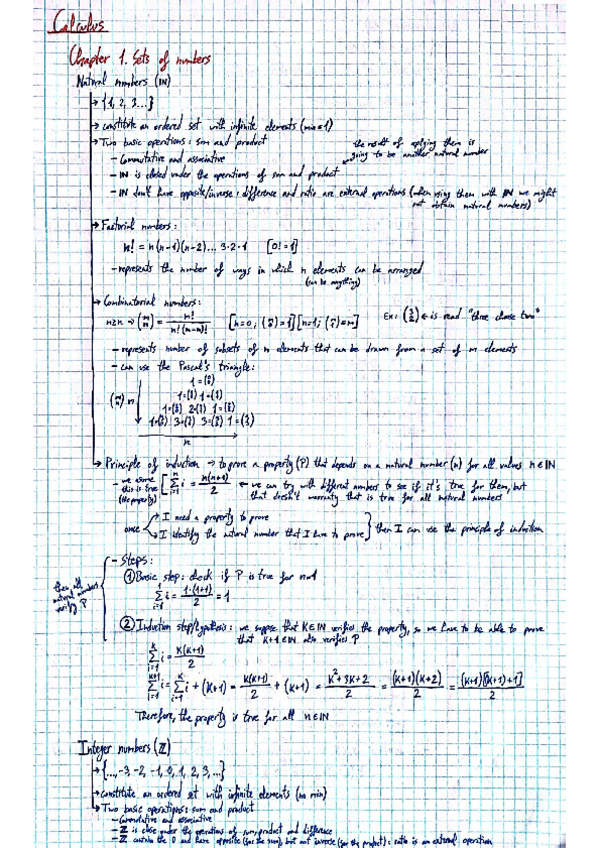 Calculus
Chapter 1. Sets of numbers
Natural numbers (ℕ)
→ {1, 2, 3...}
→ constitute an ordered set with infinite elements (min=1)
→ Two basic operations: sum and product
- Commutative and associative
the result of aplying them is going to be another natural number
- ℕ is closed under the operations of sum and product
- ℕ don't have opposite/inverse: difference and ratio are external operations (when using them with ℕ we might
not obtain natural numbers)
→ Factorial numbers:
n! = n(n-1)(n-2)... 3·2·1 [0!=1]
- represents the number of ways in which n elements can be arranged
(can be anything)
→ Combinatorial numbers:
- represents number of subsets of n elements that can be drawn from a set of m elements
Ex: (3 2) ← is read "three chose two"
- can use the Pascal's triangle:
(m n) m ↓
n
→ Principle of induction → to prove a property (P) that depends on a natural number (n) for all values n∈ℕ
- we assume this is true (the property) [∑ i=1 n i = n(n+1)/2 ← we can try with different numbers to see if it's true for them, but
that doesn't warranty that is true for all natural numbers
once → I need a property to prove
→ I identify the natural number that I have to prove } then I can use the principle of induction
then all natural numbers verify P
- Steps:
① Basic step: check if P is true for n=1
∑ i=1 1 i = 1·(1+1)/2 = 1
② Induction step/hypothesis: we suppose that K∈ℕ verifies the property, so we have to be able to prove
that K+1∈ℕ also verifies P
∑ i=1 K i = K(K+1)/2
∑ i=1 K+1 i = ∑ i=1 K i + (K+1) = K(K+1)/2 + (K+1) = K²+3K+2/2 = (K+1)(K+2)/2 = (K+1)[(K+1)+1]/2
Therefore, the property is true for all n∈ℕ
Integer numbers (ℤ)
→ {...,-3,-2,-1,0,1,2,3,...}
→ constitute an ordered set with infinite elements (no min)
→ Two basic operations: sum and product
- Commutative and associative
- ℤ is close under the operations of sum, product and difference
- ℤ contain the 0 and have opposite (for the sum), but not inverse (for the product): ratio is an external operation